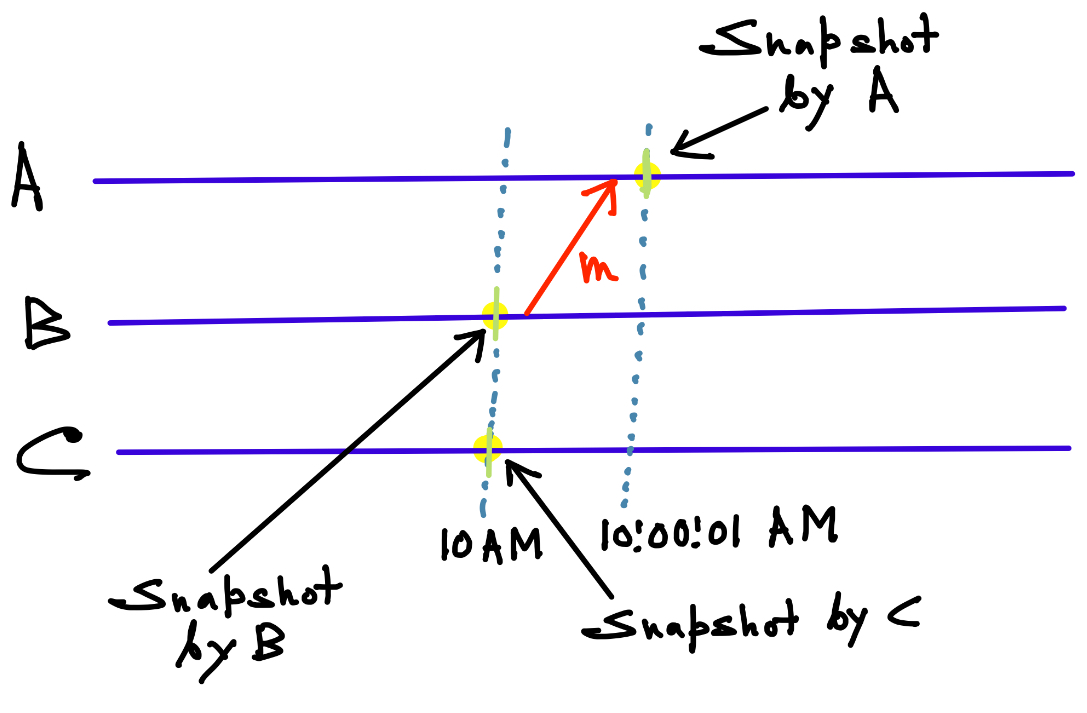 Snapshot
by A
A
m
B
C
10 AM
10:00:01 AM
Snapshot
by B
Snapshot by C